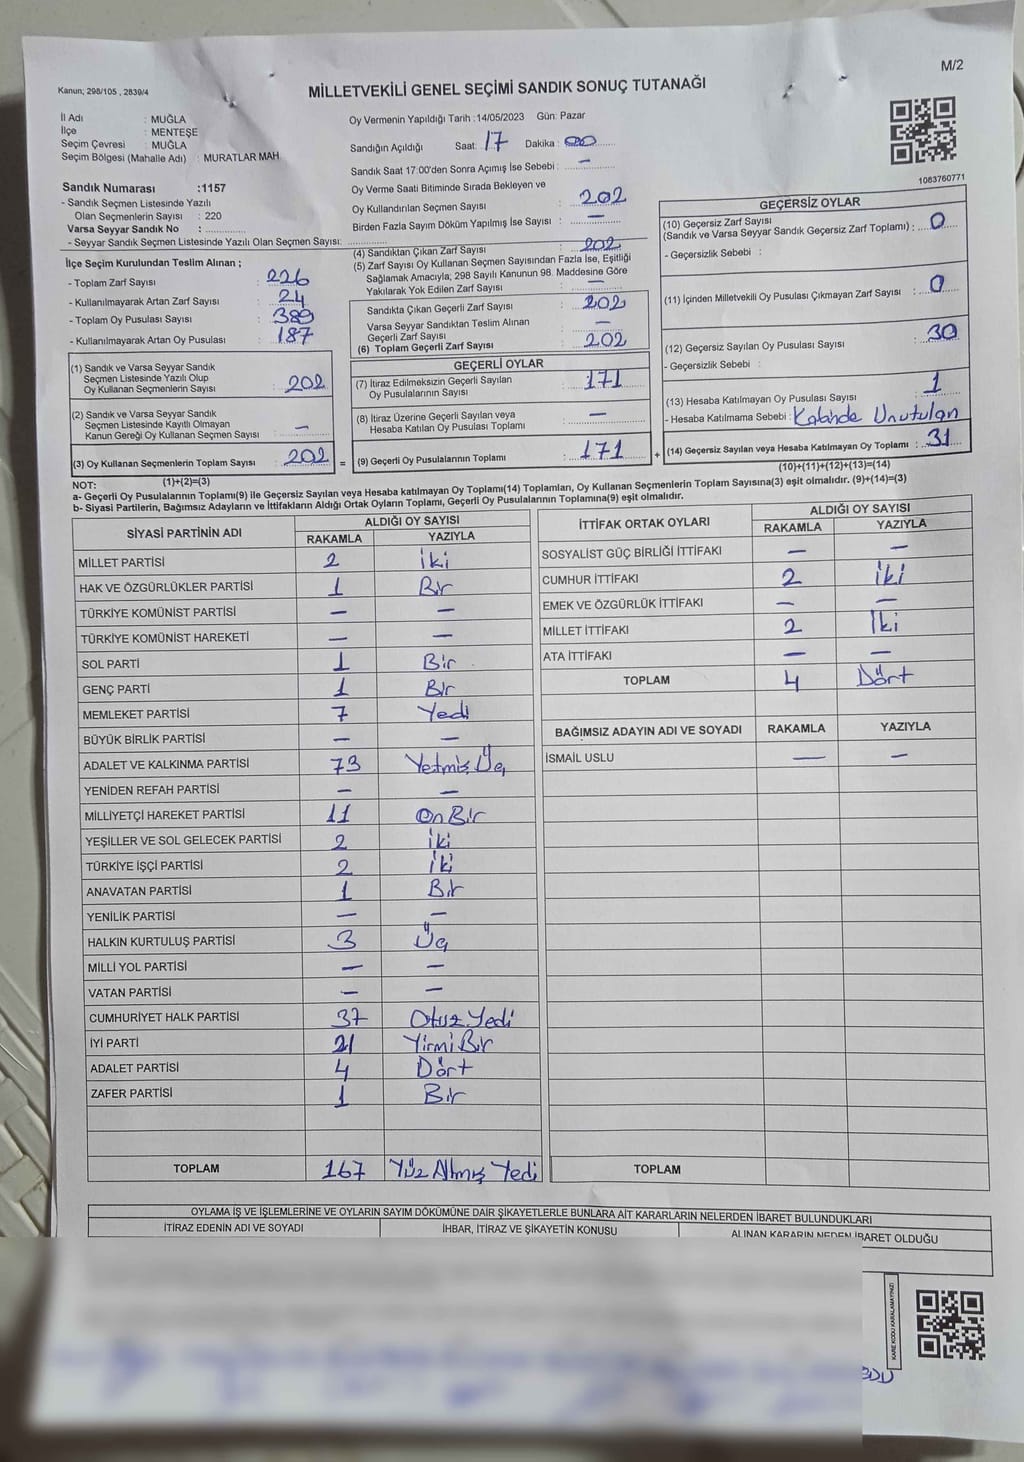 M/2
Kanun; 298/105 , 2839/4
MİLLETVEKİLİ GENEL SEÇİMİ SANDIK SONUÇ TUTANAĞI
İl Adı : MUĞLA
İlçe : MENTEŞE
Seçim Çevresi : MUĞLA
Seçim Bölgesi (Mahalle Adı) : MURATLAR MAH
Sandık Numarası :1157
- Sandık Seçmen Listesinde Yazılı
Olan Seçmenlerin Sayısı : 220
Varsa Seyyar Sandık No : ............
- Seyyar Sandık Seçmen Listesinde Yazılı Olan Seçmen Sayısı: ............
Oy Vermenin Yapıldığı Tarih :14/05/2023 Gün: Pazar
Sandığın Açıldığı Saat: 17 Dakika: 00
Sandık Saat 17:00'den Sonra Açımış İse Sebebi : —
Oy Verme Saati Bitiminde Sırada Bekleyen ve
Oy Kullandırılan Seçmen Sayısı : 202
Birden Fazla Sayım Döküm Yapılmış İse Sayısı : —
1063760771
İlçe Seçim Kurulundan Teslim Alınan ;
- Toplam Zarf Sayısı : 226
- Kullanılmayarak Artan Zarf Sayısı : 24
- Toplam Oy Pusulası Sayısı : 389
- Kullanılmayarak Artan Oy Pusulası : 187
(1) Sandık ve Varsa Seyyar Sandık
Seçmen Listesinde Yazılı Olup
Oy Kullanan Seçmenlerin Sayısı : 202
(2) Sandık ve Varsa Seyyar Sandık
Seçmen Listesinde Kayıtlı Olmayan
Kanun Gereği Oy Kullanan Seçmen Sayısı : —
(3) Oy Kullanan Seçmenlerin Toplam Sayısı : 202
(1)+(2)=(3)
(4) Sandıktan Çıkan Zarf Sayısı : 202
(5) Zarf Sayısı Oy Kullanan Seçmen Sayısından Fazla İse, Eşitliği
Sağlamak Amacıyla; 298 Sayılı Kanunun 98. Maddesine Göre
Yakılarak Yok Edilen Zarf Sayısı : —
Sandıkta Çıkan Geçerli Zarf Sayısı : 202
Varsa Seyyar Sandıktan Teslim Alınan
Geçerli Zarf Sayısı : —
(6) Toplam Geçerli Zarf Sayısı : 202
GEÇERLİ OYLAR
(7) İtiraz Edilmeksizin Geçerli Sayılan
Oy Pusulalarının Sayısı : 171
(8) İtiraz Üzerine Geçerli Sayılan veya
Hesaba Katılan Oy Pusulası Toplamı : —
= (9) Geçerli Oy Pusulalarının Toplamı : 171
GEÇERSİZ OYLAR
(10) Geçersiz Zarf Sayısı
(Sandık ve Varsa Seyyar Sandık Geçersiz Zarf Toplamı) : 0
- Geçersizlik Sebebi :
(11) İçinden Milletvekili Oy Pusulası Çıkmayan Zarf Sayısı : 0
(12) Geçersiz Sayılan Oy Pusulası Sayısı : 30
- Geçersizlik Sebebi :
(13) Hesaba Katılmayan Oy Pusulası Sayısı : 1
- Hesaba Katılmama Sebebi : Kabinde Unutulan
+ (14) Geçersiz Sayılan veya Hesaba Katılmayan Oy Toplamı : 31
(10)+(11)+(12)+(13)=(14)
NOT:
a- Geçerli Oy Pusulalarının Toplamı(9) ile Geçersiz Sayılan veya Hesaba katılmayan Oy Toplamı(14) Toplamları, Oy Kullanan Seçmenlerin Toplam Sayısına(3) eşit olmalıdır. (9)+(14)=(3)
b- Siyasi Partilerin, Bağımsız Adayların ve İttifakların Aldığı Ortak Oyların Toplamı, Geçerli Oy Pusulalarının Toplamına(9) eşit olmalıdır.
SİYASİ PARTİNİN ADI ALDIĞI OY SAYISI
RAKAMLA YAZIYLA
MİLLET PARTİSİ 2 İki
HAK VE ÖZGÜRLÜKLER PARTİSİ 1 Bir
TÜRKİYE KOMÜNİST PARTİSİ — —
TÜRKİYE KOMÜNİST HAREKETİ — —
SOL PARTİ 1 Bir
GENÇ PARTİ 1 Bir
MEMLEKET PARTİSİ 7 Yedi
BÜYÜK BİRLİK PARTİSİ — —
ADALET VE KALKINMA PARTİSİ 73 Yetmiş Üç
YENİDEN REFAH PARTİSİ — —
MİLLİYETÇİ HAREKET PARTİSİ 11 On Bir
YEŞİLLER VE SOL GELECEK PARTİSİ 2 İki
TÜRKİYE İŞÇİ PARTİSİ 2 İki
ANAVATAN PARTİSİ 1 Bir
YENİLİK PARTİSİ — —
HALKIN KURTULUŞ PARTİSİ 3 Üç
MİLLİ YOL PARTİSİ — —
VATAN PARTİSİ — —
CUMHURİYET HALK PARTİSİ 37 Otuz Yedi
İYİ PARTİ 21 Yirmi Bir
ADALET PARTİSİ 4 Dört
ZAFER PARTİSİ 1 Bir
TOPLAM 167 Yüz Altmış Yedi
İTTİFAK ORTAK OYLARI ALDIĞI OY SAYISI
RAKAMLA YAZIYLA
SOSYALİST GÜÇ BİRLİĞİ İTTİFAKI — —
CUMHUR İTTİFAKI 2 İki
EMEK VE ÖZGÜRLÜK İTTİFAKI — —
MİLLET İTTİFAKI 2 İki
ATA İTTİFAKI — —
TOPLAM 4 Dört
BAĞIMSIZ ADAYIN ADI VE SOYADI RAKAMLA YAZIYLA
İSMAİL USLU — —
TOPLAM
OYLAMA İŞ VE İŞLEMLERİNE VE OYLARIN SAYIM DÖKÜMÜNE DAİR ŞİKAYETLERLE BUNLARA AİT KARARLARIN NELERDEN İBARET BULUNDUKLARI
İTİRAZ EDENİN ADI VE SOYADI İHBAR, İTİRAZ VE ŞİKAYETİN KONUSU ALINAN KARARIN NEDEN İBARET OLDUĞU
KARE KODU KARALAMAYINIZ!